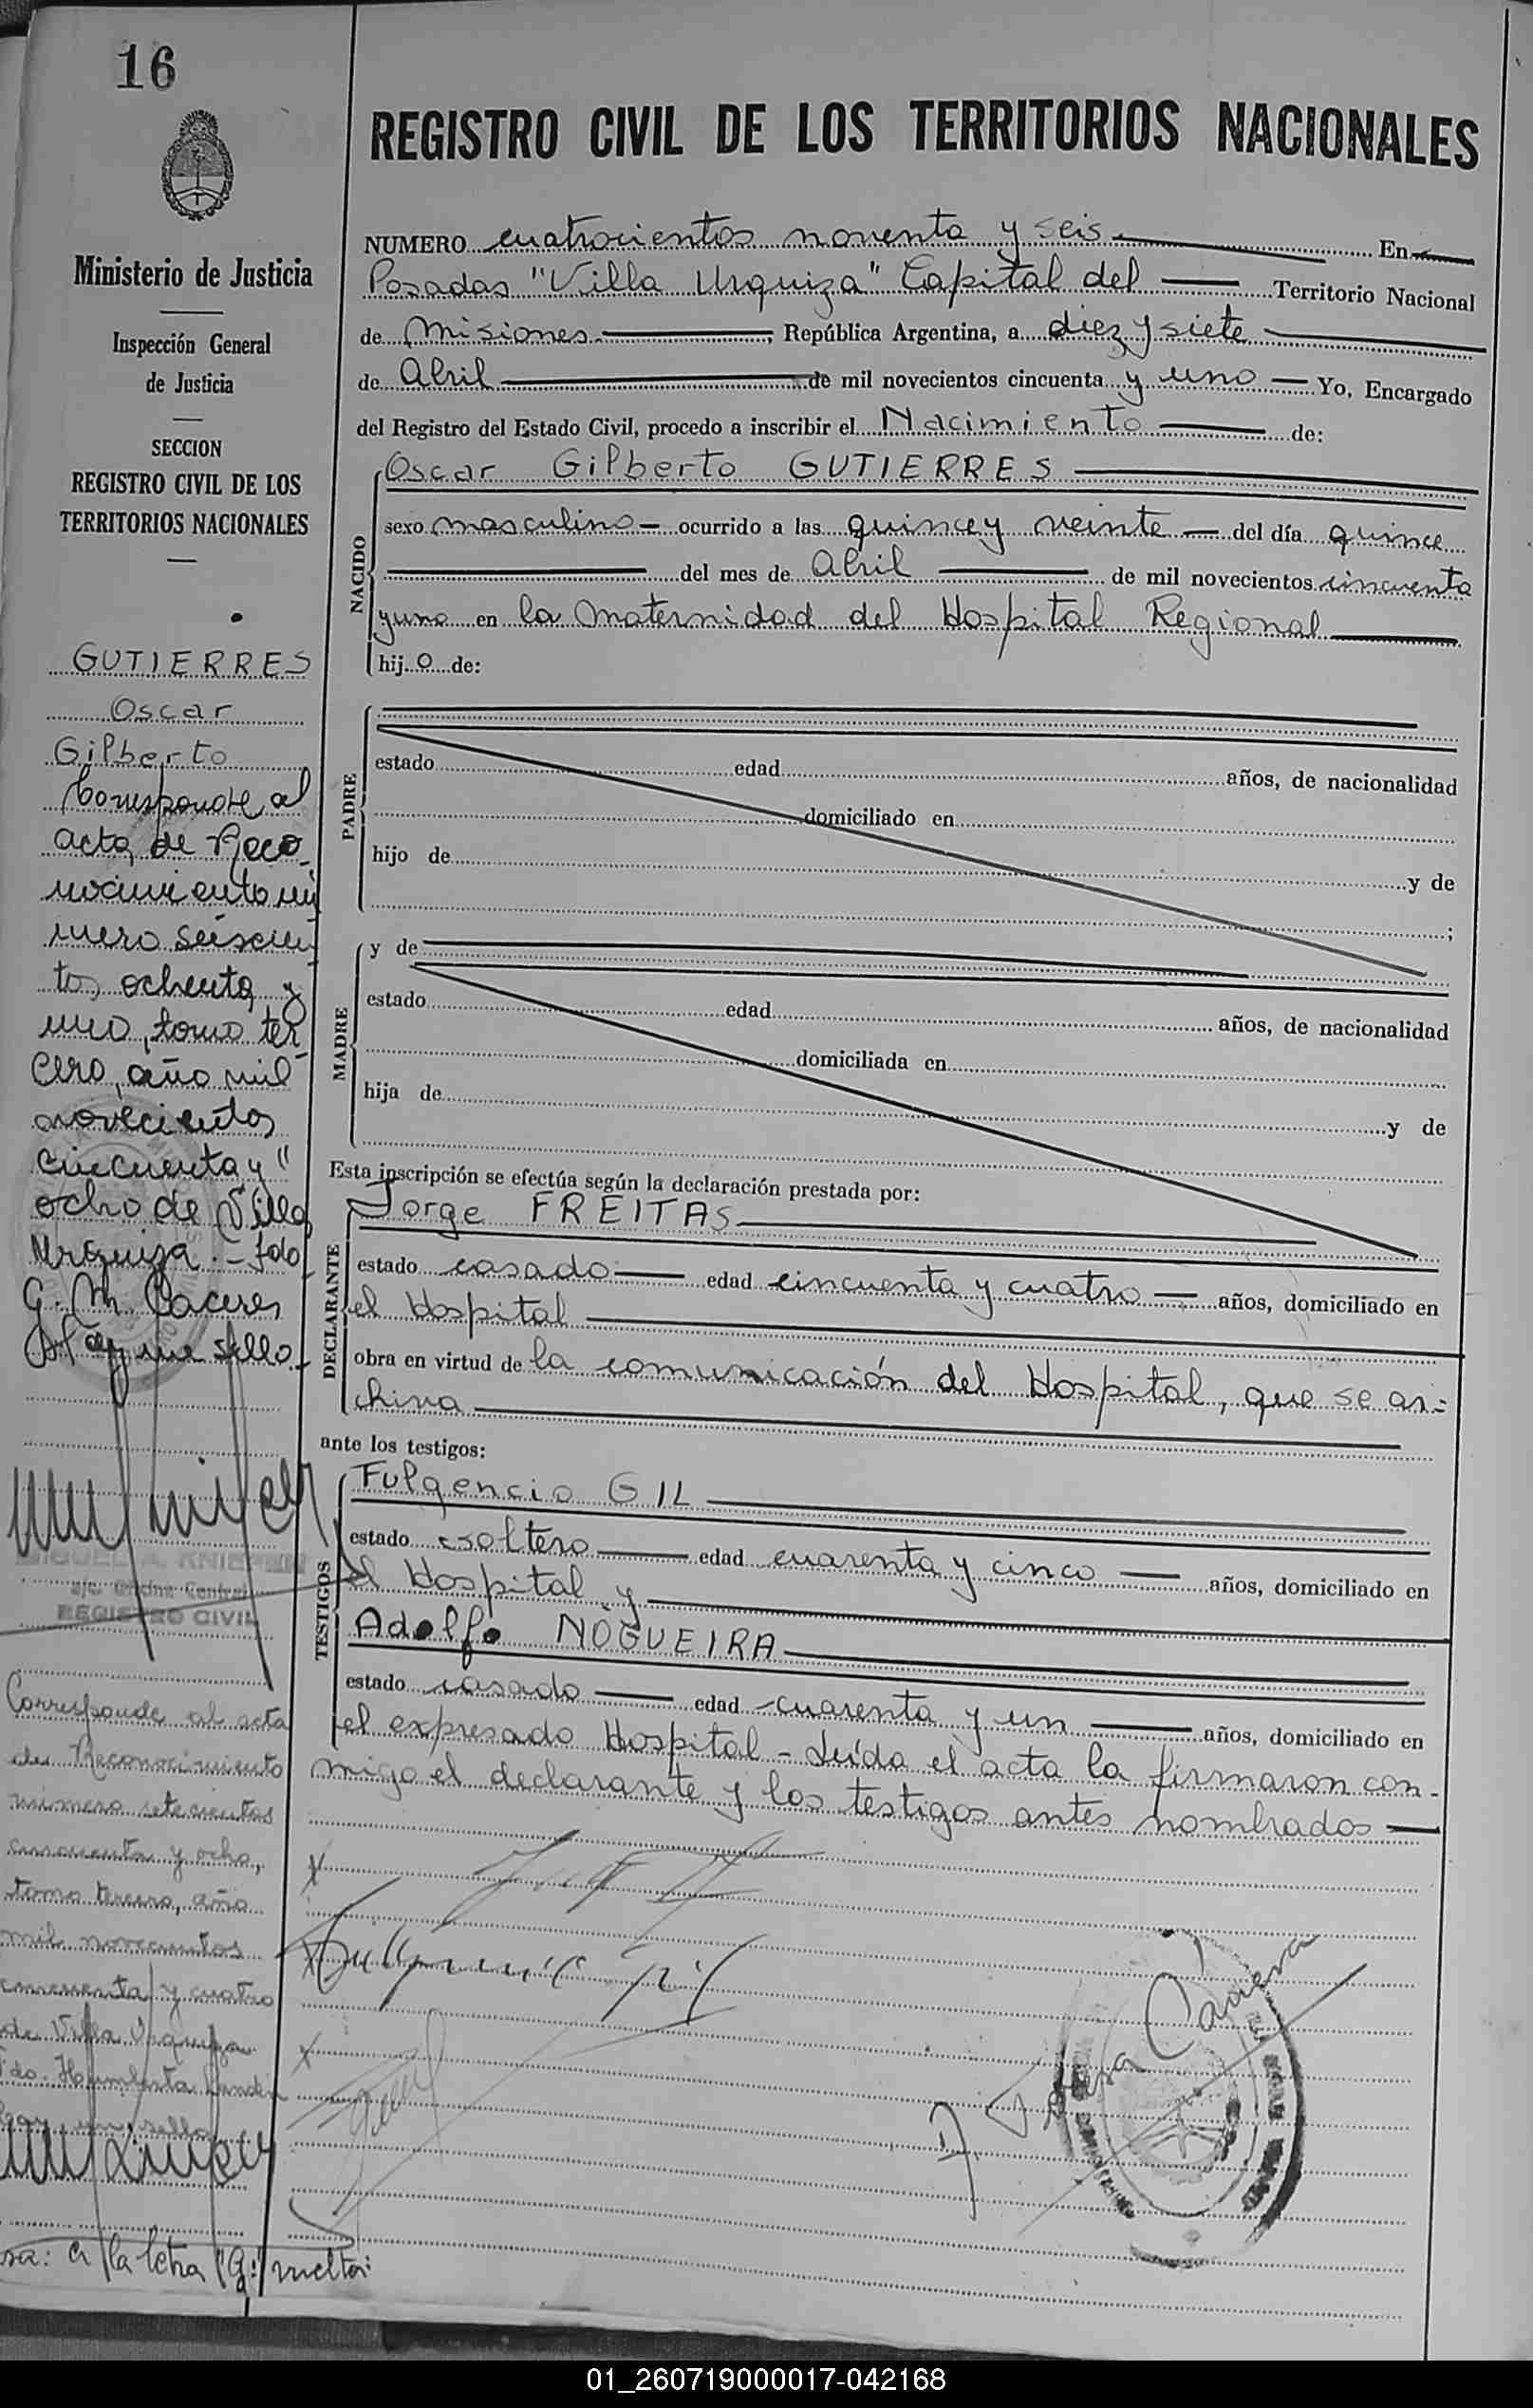 16
Ministerio de Justicia
Inspección General
de Justicia
SECCION
REGISTRO CIVIL DE LOS
TERRITORIOS NACIONALES
GUTIERRES
Oscar
Gilberto
Corresponde al
acta de Reco-
nocimiento nú
mero seiscien
tos ochenta y
uno, tomo ter
cero, año mil
novecientos
cincuenta y "
ocho de Villa
Urquiza.- fdo
G. M. Caceres
Hay un sello.-
MIGUEL A. KNIEPER
a/c. Oficina Central
REGISTRO CIVIL
Corresponde al acta
de Reconocimiento
número setecientos
cincuenta y ocho,
tomo tercero, año
mil novecientos
cincuenta y cuatro
de Villa Urquiza
Fdo. Humberto
Hay un sello
a la letra "G" vuelta:
REGISTRO CIVIL DE LOS TERRITORIOS NACIONALES
NUMERO cuatrocientos noventa y seis En
Posadas "Villa Urquiza" Capital del Territorio Nacional
de Misiones.- ; República Argentina, a diez y siete
de Abril de mil novecientos cincuenta y uno Yo, Encargado
del Registro del Estado Civil, procedo a inscribir el Nacimiento de:
NACIDO
Oscar Gilberto GUTIERRES
sexo masculino ocurrido a las quince y veinte del día quince
del mes de Abril de mil novecientos cincuenta
y uno en la Maternidad del Hospital Regional
hij o de:
PADRE
estado edad años, de nacionalidad
domiciliado en
hijo de y de
;
MADRE
y de
estado edad años, de nacionalidad
domiciliada en
hija de y de
Esta inscripción se efectúa según la declaración prestada por:
DECLARANTE
Jorge FREITAS
estado casado edad cincuenta y cuatro años, domiciliado en
el Hospital
obra en virtud de la comunicación del Hospital, que se ar=
chiva
ante los testigos:
TESTIGOS
Fulgencio GIL
estado soltero edad cuarenta y cinco años, domiciliado en
el Hospital y
Adolfo NOGUEIRA
estado casado edad cuarenta y un años, domiciliado en
el expresado Hospital - Leída el acta la firmaron con-
migo el declarante y los testigos antes nombrados
x
x Fulgencio Gil
x
01_260719000017-042168